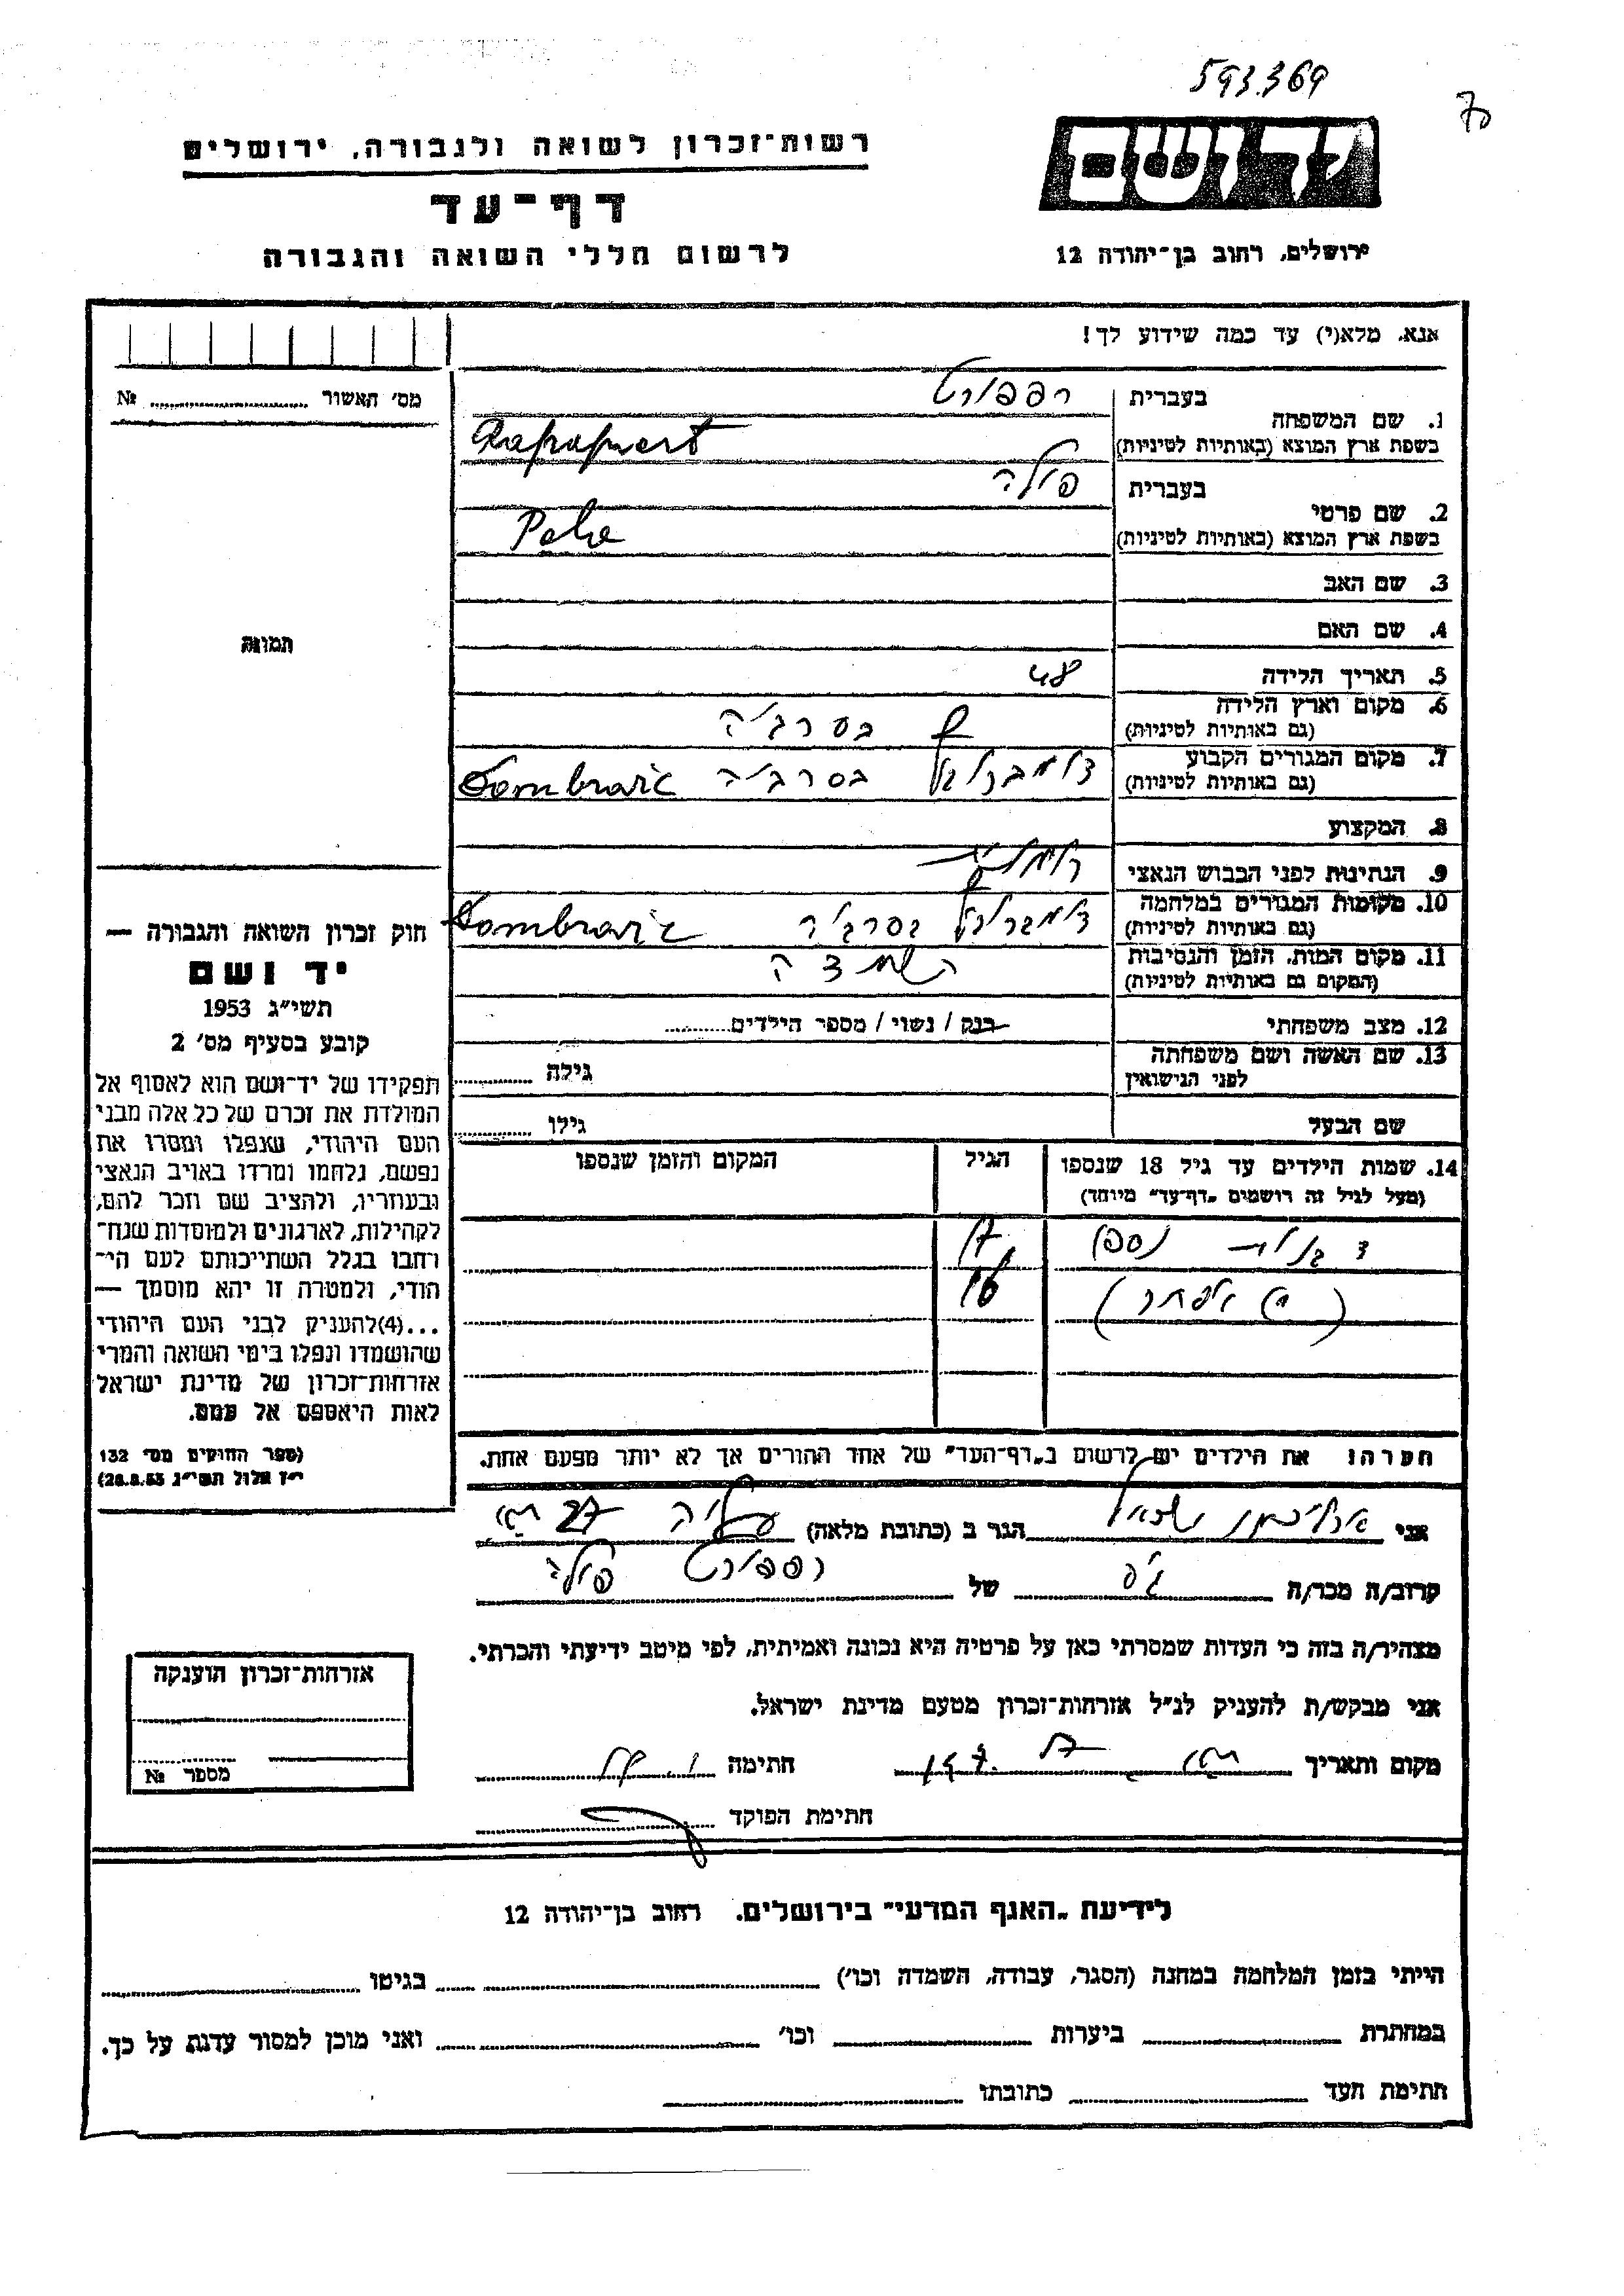 593369
רשות־זכרון לשואה ולגבורה, ירושלים
יד ושם
דף־עד
לרשום חללי השואה והגבורה
ירושלים, רחוב בן־יהודה 12
אנא, מלא(י) עד כמה שידוע לך!
מס׳ האשור № 
1. שם המשפחה
בעברית רפפורט
בשפת ארץ המוצא (באותיות לטיניות) Rapaport
2. שם פרטי
בעברית פולה
בשפת ארץ המוצא (באותיות לטיניות)
3. שם האב
4. שם האם
5. תאריך הלידה 48
6. מקום וארץ הלידה
(גם באותיות לטיניות)
7. מקום המגורים הקבוע
(גם באותיות לטיניות)
8. המקצוע
9. הנתינות לפני הכבוש הנאצי
10. מקומות המגורים במלחמה
(גם באותיות לטיניות)
11. מקום המות, הזמן והנסיבות השמדה
(המקום גם באותיות לטיניות)
12. מצב משפחתי רנק / נשוי / מספר הילדים
13. שם האשה ושם משפחתה
לפני הנישואין
גילה
שם הבעל גילו
14. שמות הילדים עד גיל 18 שנספו הגיל המקום והזמן שנספו
(מעל לגיל זה רושמים „דף־עד״ מיוחד)
17
16
הערה: את הילדים יש לרשום ב„דף־העד״ של אחד ההורים אך לא יותר מפעם אחת.
תמונה
חוק זכרון השואה והגבורה —
יד ושם
תשי״ג 1953
קובע בסעיף מס׳ 2
תפקידו של יד־ושם הוא לאסוף אל
המולדת את זכרם של כל אלה מבני
העם היהודי, שנפלו ומסרו את
נפשם, נלחמו ומרדו באויב הנאצי
ובעוזריו, ולהציב שם וזכר להם,
לקהילות, לארגונים ולמוסדות שנח־
רבו בגלל השתייכותם לעם הי־
הודי, ולמטרה זו יהא מוסמך —
...(4) להעניק לבני העם היהודי
שהושמדו ונפלו בימי השואה והמרי
אזרחות־זכרון של מדינת ישראל
לאות היאספם אל עמם.
(ספר החוקים מס׳ 132
י״ז אלול תשי״ג 28.8.53)
אני הגר ב (כתובת מלאה) 27
קרוב/ה מכר/ה גיס של רפפורט פולה
מצהיר/ה בזה כי העדות שמסרתי כאן על פרטיה היא נכונה ואמיתית, לפי מיטב ידיעתי והכרתי.
אני מבקש/ת להעניק לנ״ל אזרחות־זכרון מטעם מדינת ישראל.
מקום ותאריך חתימה
חתימת הפוקד
אזרחות־זכרון הוענקה
מספר №
לידיעת „האגף המדעי״ בירושלים, רחוב בן־יהודה 12
הייתי בזמן המלחמה במחנה (הסגר, עבודה, השמדה וכו׳) בגיטו
במחתרת ביערות וכו׳ ואני מוכן למסור עדות על כך.
חתימת העד כתובתו